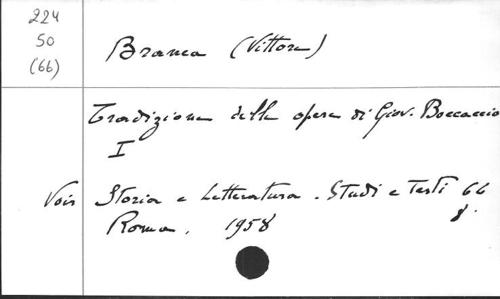 224
50
(66)
Branca (Vittore)
Tradizione delle opere di Giov. Boccaccio
I
Voir Storia e Letteratura. Studi e Testi 66
8.
Roma, 1958